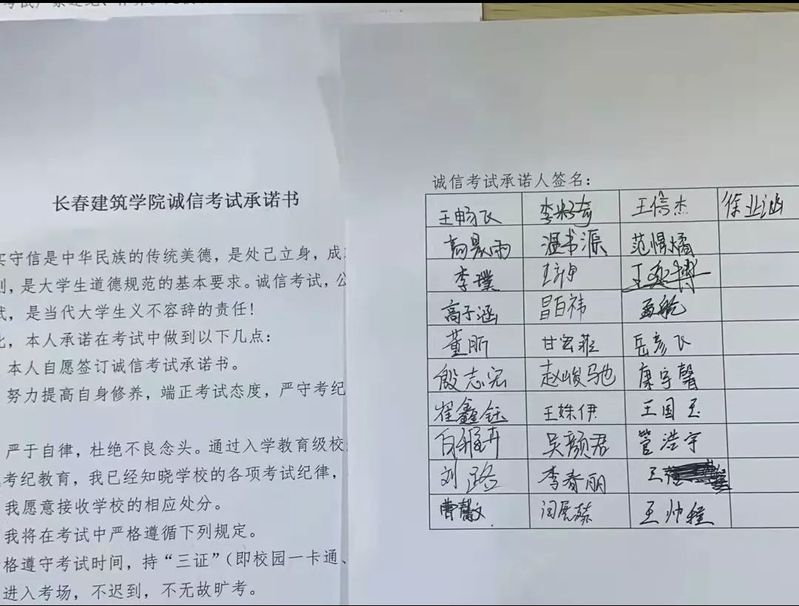 长春建筑学院诚信考试承诺书
实守信是中华民族的传统美德，是处己立身，成
则，是大学生道德规范的基本要求。诚信考试，公
式，是当代大学生义不容辞的责任！
此，本人承诺在考试中做到以下几点：
本人自愿签订诚信考试承诺书。
努力提高自身修养，端正考试态度，严守考纪
严于自律，杜绝不良念头。通过入学教育级校
考纪教育，我已经知晓学校的各项考试纪律，
我愿意接收学校的相应处分。
我将在考试中严格遵循下列规定。
格遵守考试时间，持“三证”（即校园一卡通、
进入考场，不迟到，不无故旷考。
诚信考试承诺人签名：
王畅飞 王信杰 徐业涵
高晨雨 温书源 范惺燏
李璞
高子涵 昌百祎 孟航
董昕 甘宏菲 岳彦飞
殷志宏 赵峻驰 康宇馨
崔鑫钰 王姝伊 王国玉
吴颜君 管浩宇
刘璐 李春丽 王
闫居赫 王帅程